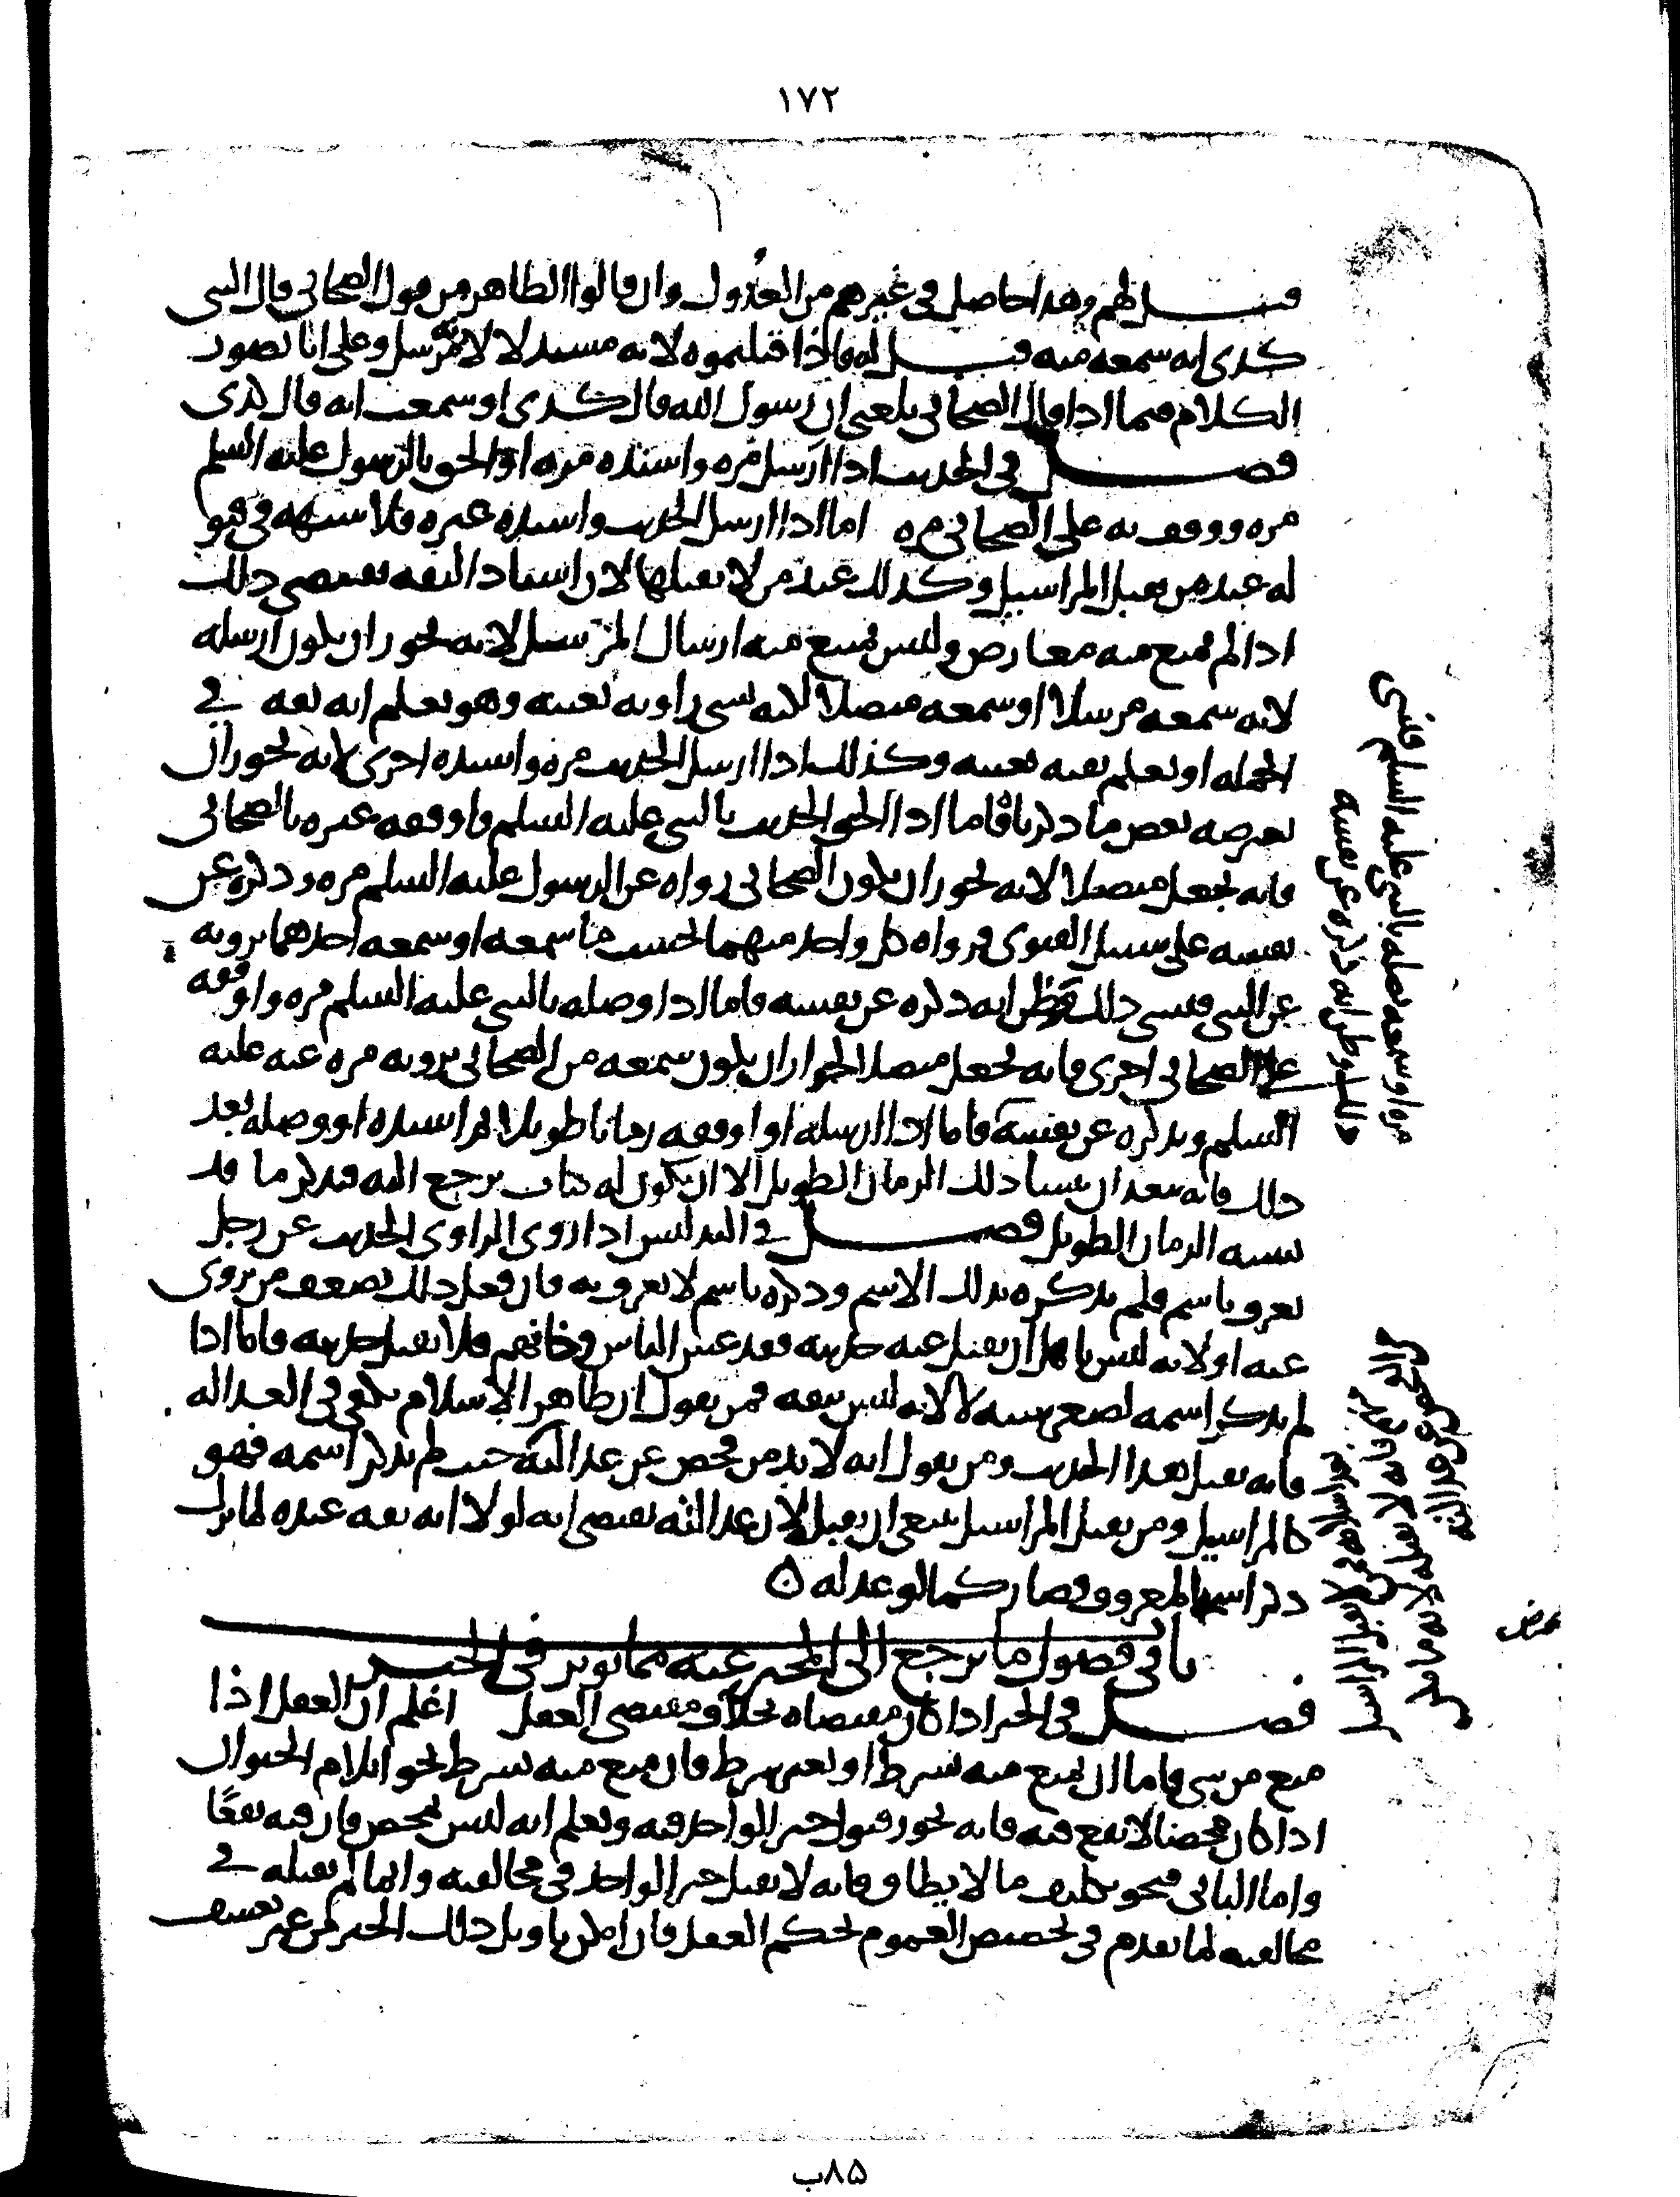 ١٧٢
قيل لهم وهذا حاصل في غيرهم من العدول وان قالوا الظاهر من قول الصحابي قال النبي
كذى انه سمعه منه قيل له فاذا قبلتموه لانه مسند لا لانه مرسل وعلى انا نصور
الكلام فيما اذا قال الصحابي بلغني ان رسول الله قال كذى او سمعت انه قال كذى
فصل في الحديث اذا ارسل مره واسنده مره او الحق بالرسول عليه السلم
مره ووقف به على الصحابي مره اما اذا ارسل الحديث واسنده غيره فلا شبهه في قبو
له عند من يقبل المراسيل وكذلك عند من لا يقبلها لان اسناد الثقه يقتضي ذلك
اذا لم يمنع منه معارض وليس يمنع منه ارسال المرسل لانه يجوز ان يكون ارسله
لانه سمعه مرسلا او سمعه متصلا لكنه نسي راويه بعينه وهو يعلم انه ثقه في
الجمله او يعلم ثقته بعينه وكذلك اذا ارسل الحديث مره واسنده اخرى لانه يجوز ان
يعرضه بعض ما ذكرناه فاما اذا الحق الحديث بالنبي عليه السلم واوقفه غيره بالصحابي
فانه يجعل متصلا لانه يجوز ان يكون الصحابي رواه عن الرسول عليه السلم مره وذكره عن
نفسه على سبيل الفتوى فرواه كل واحد منهما بحسب ما سمعه او سمعه احدهما يرويه
عن النبي فنسي ذلك فظن انه ذكره عن نفسه فاما اذا وصله بالنبي عليه السلم مره واوقفه
على الصحابي اخرى فانه يجعل متصلا لجواز ان يكون سمعه من الصحابي يرويه مره عنه عليه
السلم ويذكره عن نفسه فاما اذا ارسله او اوقفه زمانا طويلا ثم اسنده او وصله بعد
ذلك فانه يبعد ان ينسا ذلك الزمان الطويل الا ان يكون له كتاب يرجع اليه فيذكر ما قد
نسيه الزمان الطويل فصل في التدليس اذا روى الراوي الحديث عن رجل
يعرف باسم فلم يذكره بذلك الاسم وذكره باسم لا يعرف به فان فعل ذلك لضعف من يروي
عنه او لانه ليس باهل ان يقبل عنه حديثه فقد غش الناس وخانهم فلا يقبل حديثه فاما اذا
لم يذكر اسمه لصغر سنه لا لانه ليس بثقه فمن يقول ان ظاهر الاسلام يكفي في العداله
فانه يقبل هذا الحديث ومن يقول انه لا بد من فحص عن عدالته حيث لم يذكر اسمه فهو
كالمراسيل ومن يقبل المراسيل ينبغي ان يقبله لان عدالته تقتضي انه لولا انه ثقه عنده لما ترك
ذكر اسمه المعروف فصار كما لو عدله
باقي فصول ما يرجع الى المخبر عنه مما يوثر في الخبر
فصل في الخبر اذا كان مقتضاه بخلاف مقتضى العقل اعلم ان العقل اذا
منع من شي فاما ان يمنع منه بشرط او بغير شرط فان منع منه بشرط نحو ايلام الحيوان
اذا كان محضا لا نفع فيه فانه يجوز قبول خبر الواحد فيه ويعلم انه ليس بمحض فان فيه نفعًا
واما الثاني فنحو تكليف ما لا يطاق فانه لا يقبل خبر الواحد في مخالفته وانما لم نقبله في
مخالفته لما تقدم في تخصيص العموم لحكم العقل فان امكن تاويل ذلك الخبر من غير تعسف
مره او سمعه يصله بالنبي عليه السلم فنسي
ذلك وظن انه ذكره عن نفسه
٨٥ب